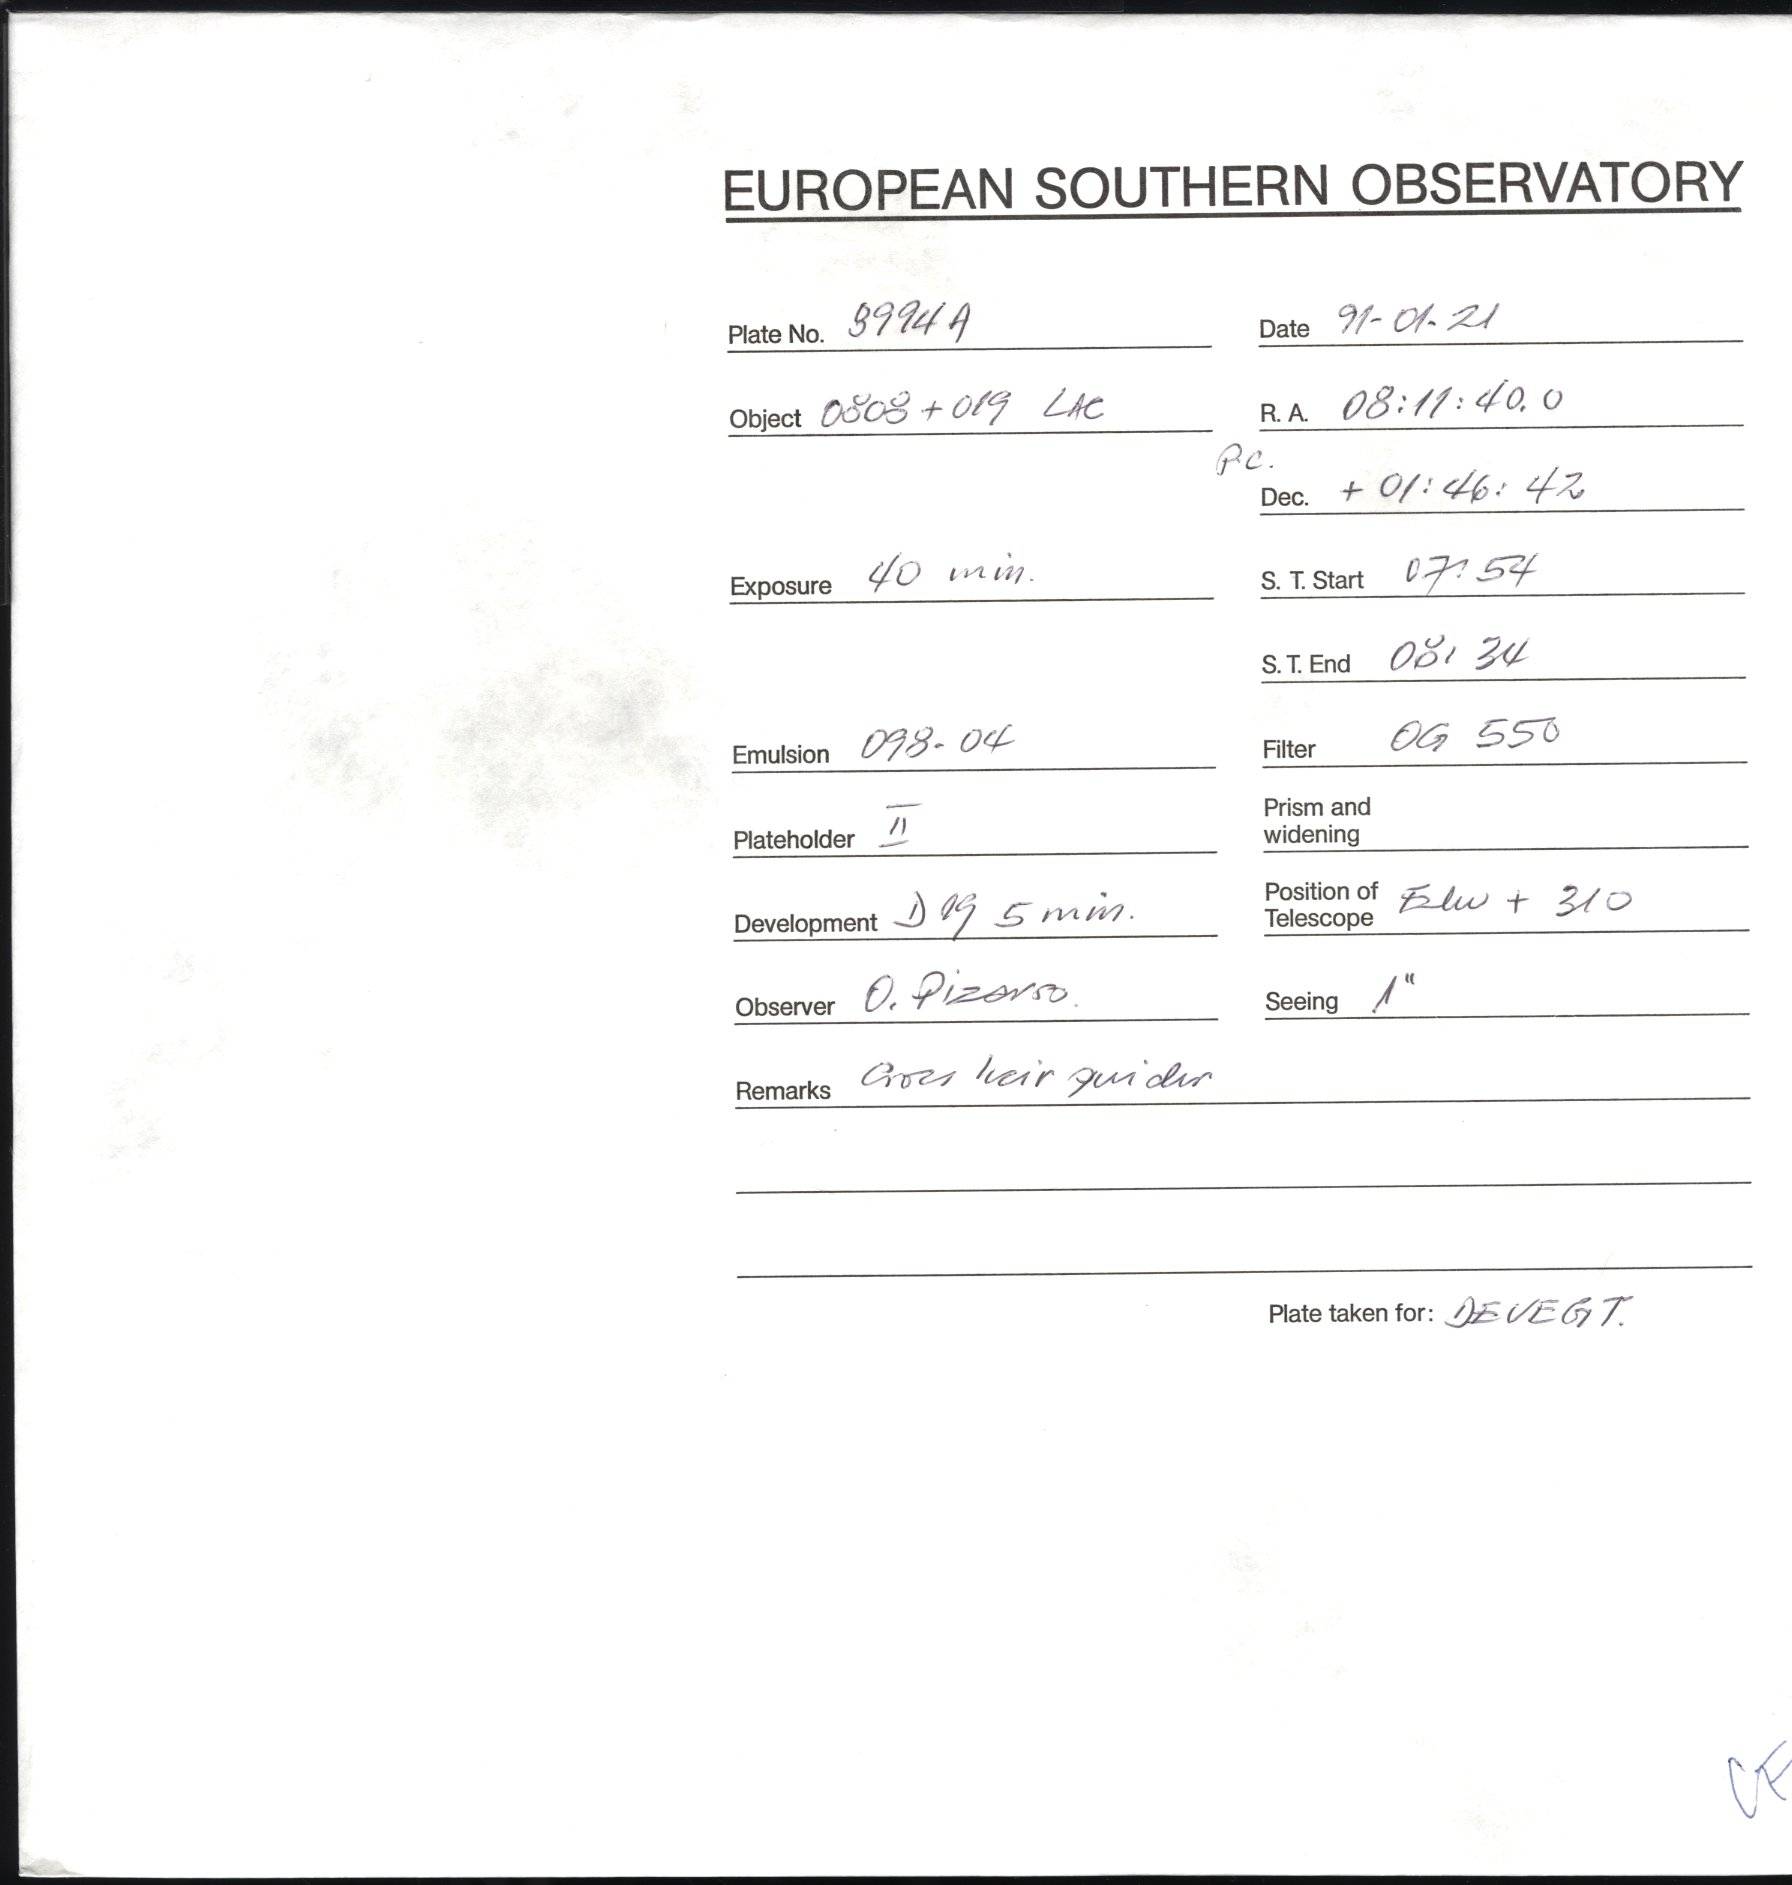 EUROPEAN SOUTHERN OBSERVATORY
Plate No. 8994 A
Date 91-01-21
Object 0808 + 019 LAC
R. A. 08:11:40.0
P.C.
Dec. + 01:46:42
Exposure 40 min.
S. T. Start 07:54
S. T. End 08:34
Emulsion 098-04
Filter OG 550
Plateholder II
Prism and
widening
Development D 19 5 min.
Position of
Telescope + 310
Observer O. Pizarro.
Seeing 1"
Remarks Cross hair guider
Plate taken for: DEVEGT.